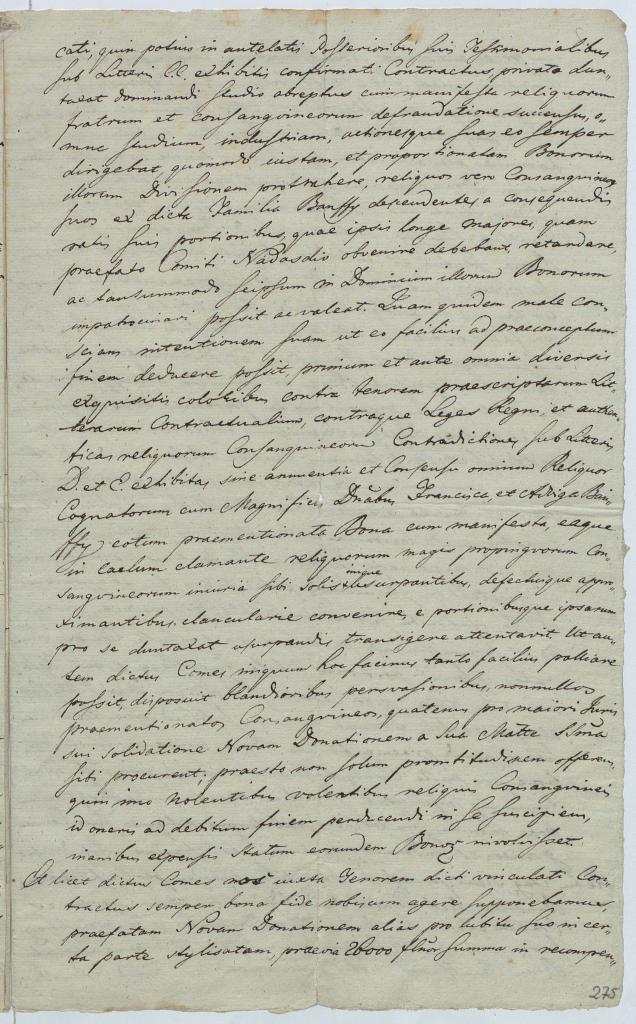 cati, quin potius in antelatis Posterioribus suis Testimonialibus
sub Litteris C.C. exhibitis confirmati Contractus, privato dun¬
taxat dominandi studio abreptus cum manifesta reliquorum
fratrum et consangvineorum defraudatione successus, o¬
mne studium, industriam, actionesque suas eo semper
dirigebat, quomodo iustam, et proportionatam Bonorum
illorum Divisionem protrahere, reliquos vero Consangvineos
suos ex dicta Familia Banffy descendentes a consequendis
ratis suis portionibus, quae ipsis longe majores, quam
praefato Comiti Nadasdio obvenire debebant, retardare,
ac tansummodo seipsum in Dominium illorum Bonorum
impatrocinari possit ac valeat. Quam quidem male con¬
sciam intentionem suam ut eo facilius ad praeconceptum
finem deducere possit, primum et ante omnia diversis
exquisitis coloribus contra tenorem praescriptarum Lit¬
terarum Contractualium, contraque Leges Regni, et authen¬
ticas reliquorum Consangvineorum Contradictiones sub Litteris
D. et E. exhibitas, sine annuentia et Consensu omnium Reliquor
Cognatorum cum Magnificis Dnabus Francisca, et Adviga Ban¬
ffy eotum praementionata Bona cum manifesta, eaque
in caelum clamante reliquorum magis propinqvorum Con¬
sangvineorum iniuria sibi solis inique usurpantibus, defectuique appro¬
ximantibus, clancularie convenire, e portionibusque ipsarum
pro se duntaxat usurpandis transigere attentavit. Ut au¬
tem dictus Comes iniquum hoc facinus tanto facilius palliare
possit, disposuit blandioribus persvasionibus, nonnullos
praementionatos Consangvineos, quatenus pro maiori Juris
sui solidatione Novam Donationem a Sua Matte Ssma
sibi procurent; praesto non solum promtitudinem offerens,
quin imo nolentibus volentibus reliquis Consangvineis
id oneris ad debitum finem perducendi in se suscipiens,
manibus expensis statum eorundem Bonor involvisset.
Et licet dictus Comes nos iuxta Tenorem dicti vinculati Con¬
tractus semper bona fide nobiscum agere supponebamus,
praefatam Novam Donationem alias pro lubitu suo in cer¬
ta parte stylisatam, praevia 26000 flnor summa in recompen¬
275